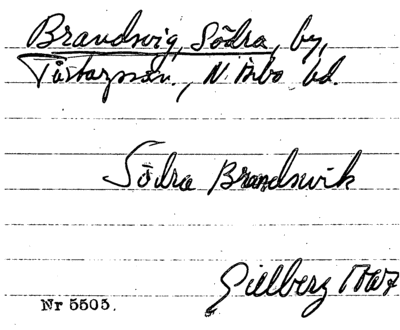 Brandsvig, Södra, by,
Tåstarps sn., N. Åsbo hd.
Södra Brandsvik
Gillberg 1767
Nr 5505.